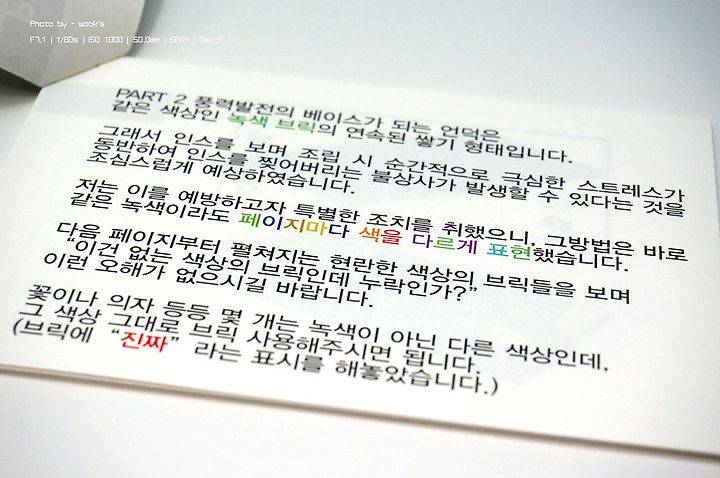 Photo by - wook's
F7.1 | 1/80s | ISO 1000 | 50.0mm | SONY | Nex-6
PART 2 풍력발전의 베이스가 되는 언덕은
같은 색상인 녹색 브릭의 연속된 쌓기 형태입니다.
그래서 인스를 보며 조립 시 순간적으로 극심한 스트레스가
동반하여 인스를 찢어버리는 불상사가 발생할 수 있다는 것을
조심스럽게 예상하였습니다.
저는 이를 예방하고자 특별한 조치를 취했으니, 그방법은 바로
같은 녹색이라도 페이지마다 색을 다르게 표현했습니다.
다음 페이지부터 펼쳐지는 현란한 색상의 브릭들을 보며
“이건 없는 색상의 브릭인데 누락인가?”
이런 오해가 없으시길 바랍니다.
꽃이나 의자 등등 몇 개는 녹색이 아닌 다른 색상인데,
그 색상 그대로 브릭 사용해주시면 됩니다.
(브릭에 “진짜” 라는 표시를 해놓았습니다.)